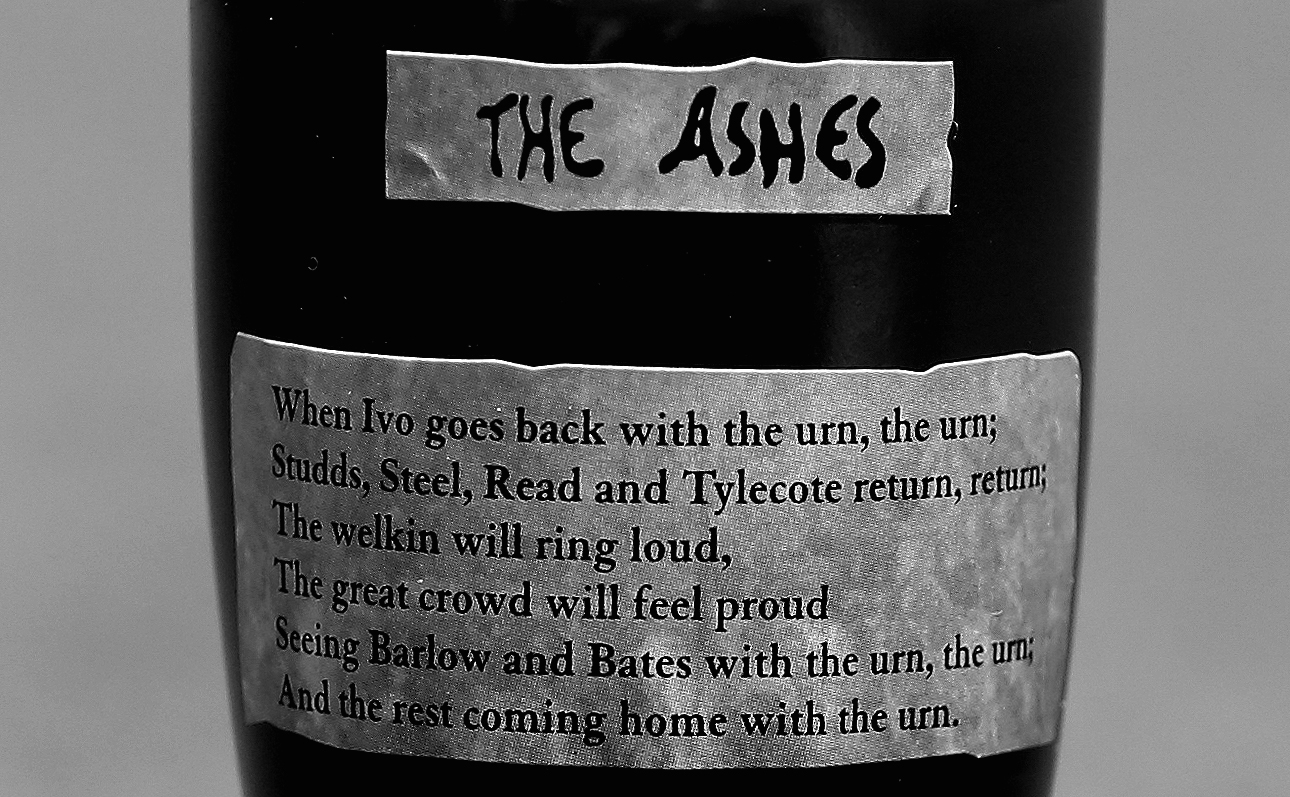 THE ASHES
When Ivo goes back with the urn, the urn;
Studds, Steel, Read and Tylecote return, return;
The welkin will ring loud,
The great crowd will feel proud
Seeing Barlow and Bates with the urn, the urn;
And the rest coming home with the urn.